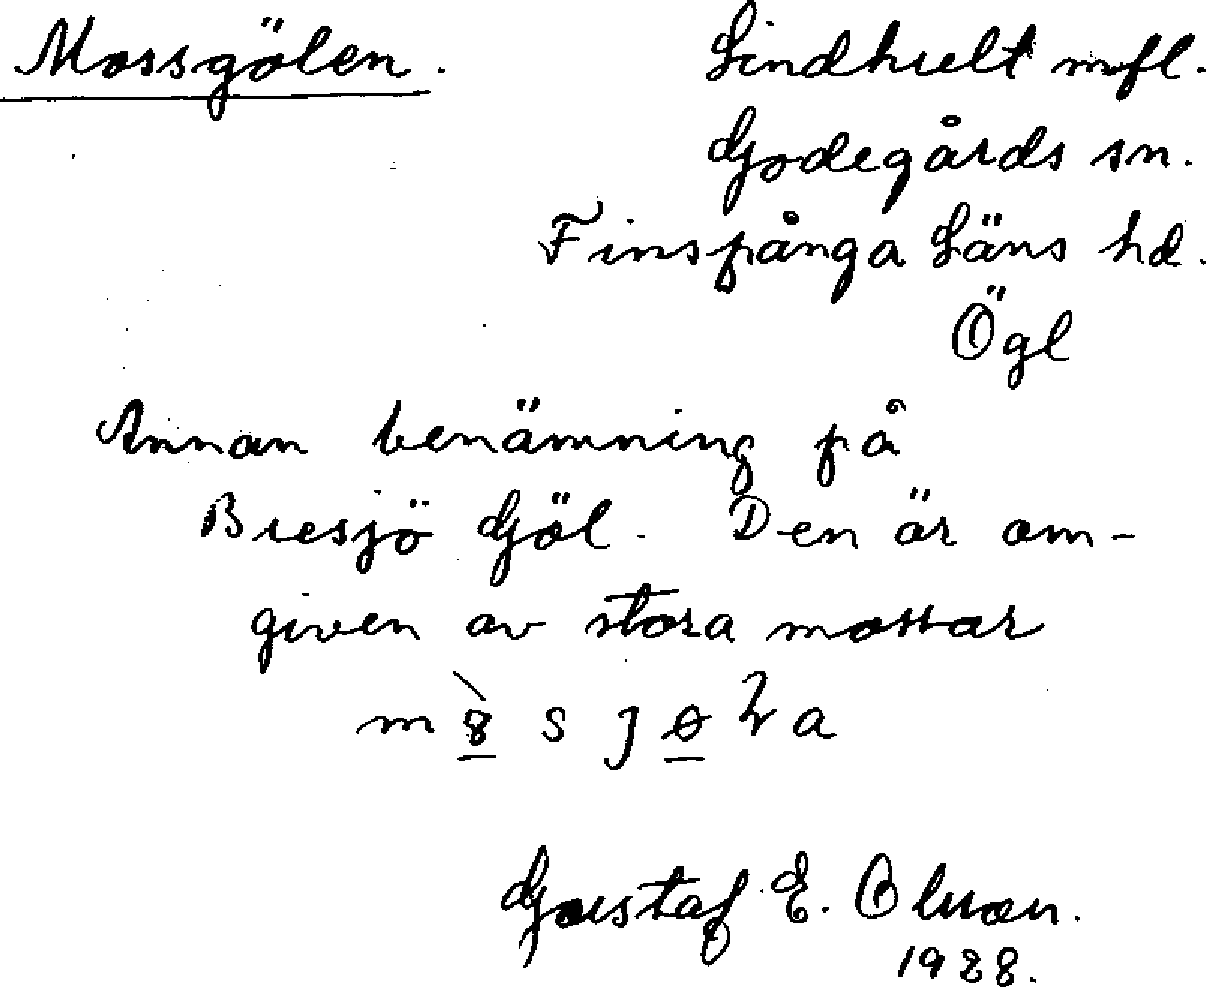 Mossgölen. Lindhult mfl.
Godegårds sn.
Finspånga Läns hd.
Ögl
Annan benämning på
Bresjö Göl. Den är om-
given av stora mossar
Gustaf E. Olsson.
1928.